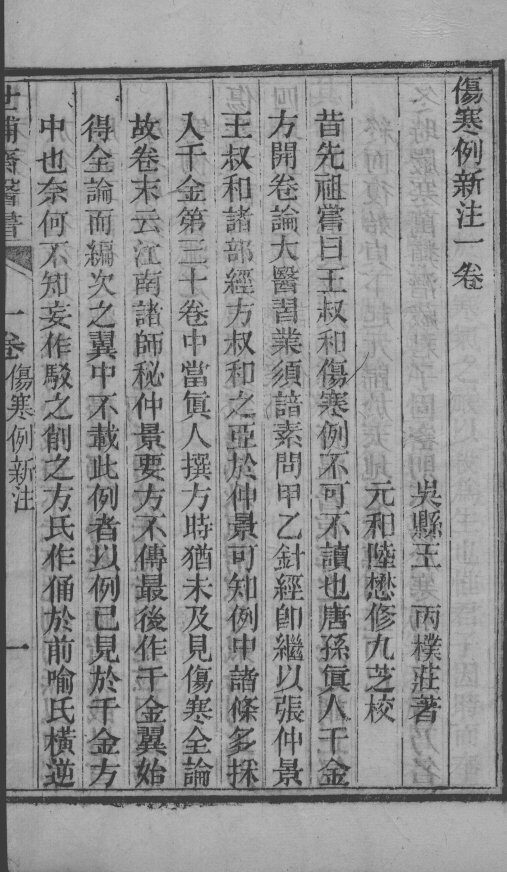 傷寒例新注一卷
吳縣王 丙樸莊著
元和陸懋修九芝校
昔先祖嘗曰王叔和傷寒例不可不讀也唐孫眞人千金
方開卷論大醫習業須諳素問甲乙針經卽繼以張仲景
王叔和諸部經方叔和之亞於仲景可知例中諸條多採
入千金第三十卷中當眞人撰方時猶未及見傷寒全論
故卷末云江南諸師秘仲景要方不傳最後作千金翼始
得全論而編次之翼中不載此例者以例已見於千金方
中也奈何不知妄作駁之削之方氏作俑於前喻氏橫逆
世補齋醫書 一卷 傷寒例新注 一